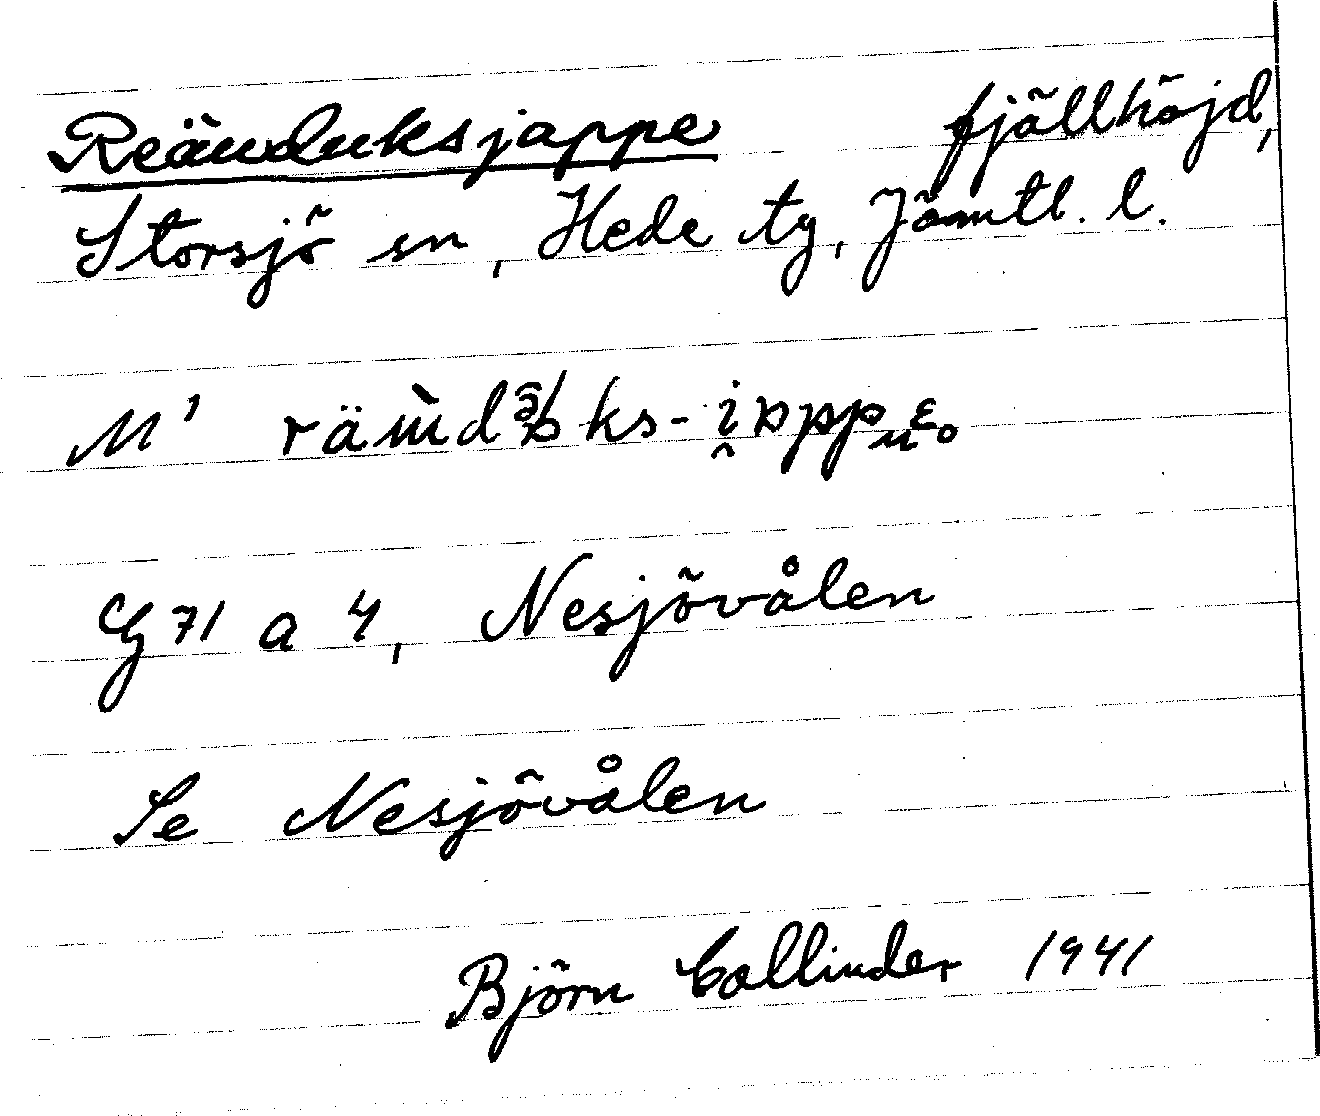 Reänduksjappe fjällhöjd,
Storsjö sn, Hede tg, Jämtl. l.
M'
G 71 a 4, Nesjövålen
Se Nesjövålen
Björn Collinder 1941